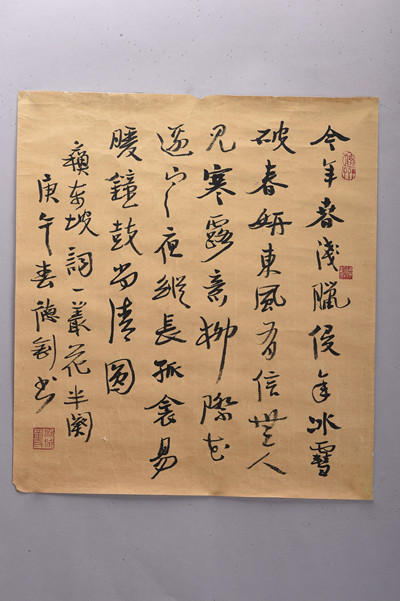 今年春淺臘侵年冰雪
破春妍東風有信無人
见寒露意柳際花
邊夜縱長孤衾易
暖鐘鼓尚清圓
蘇东坡詞一叢花半闋
庚午春德书